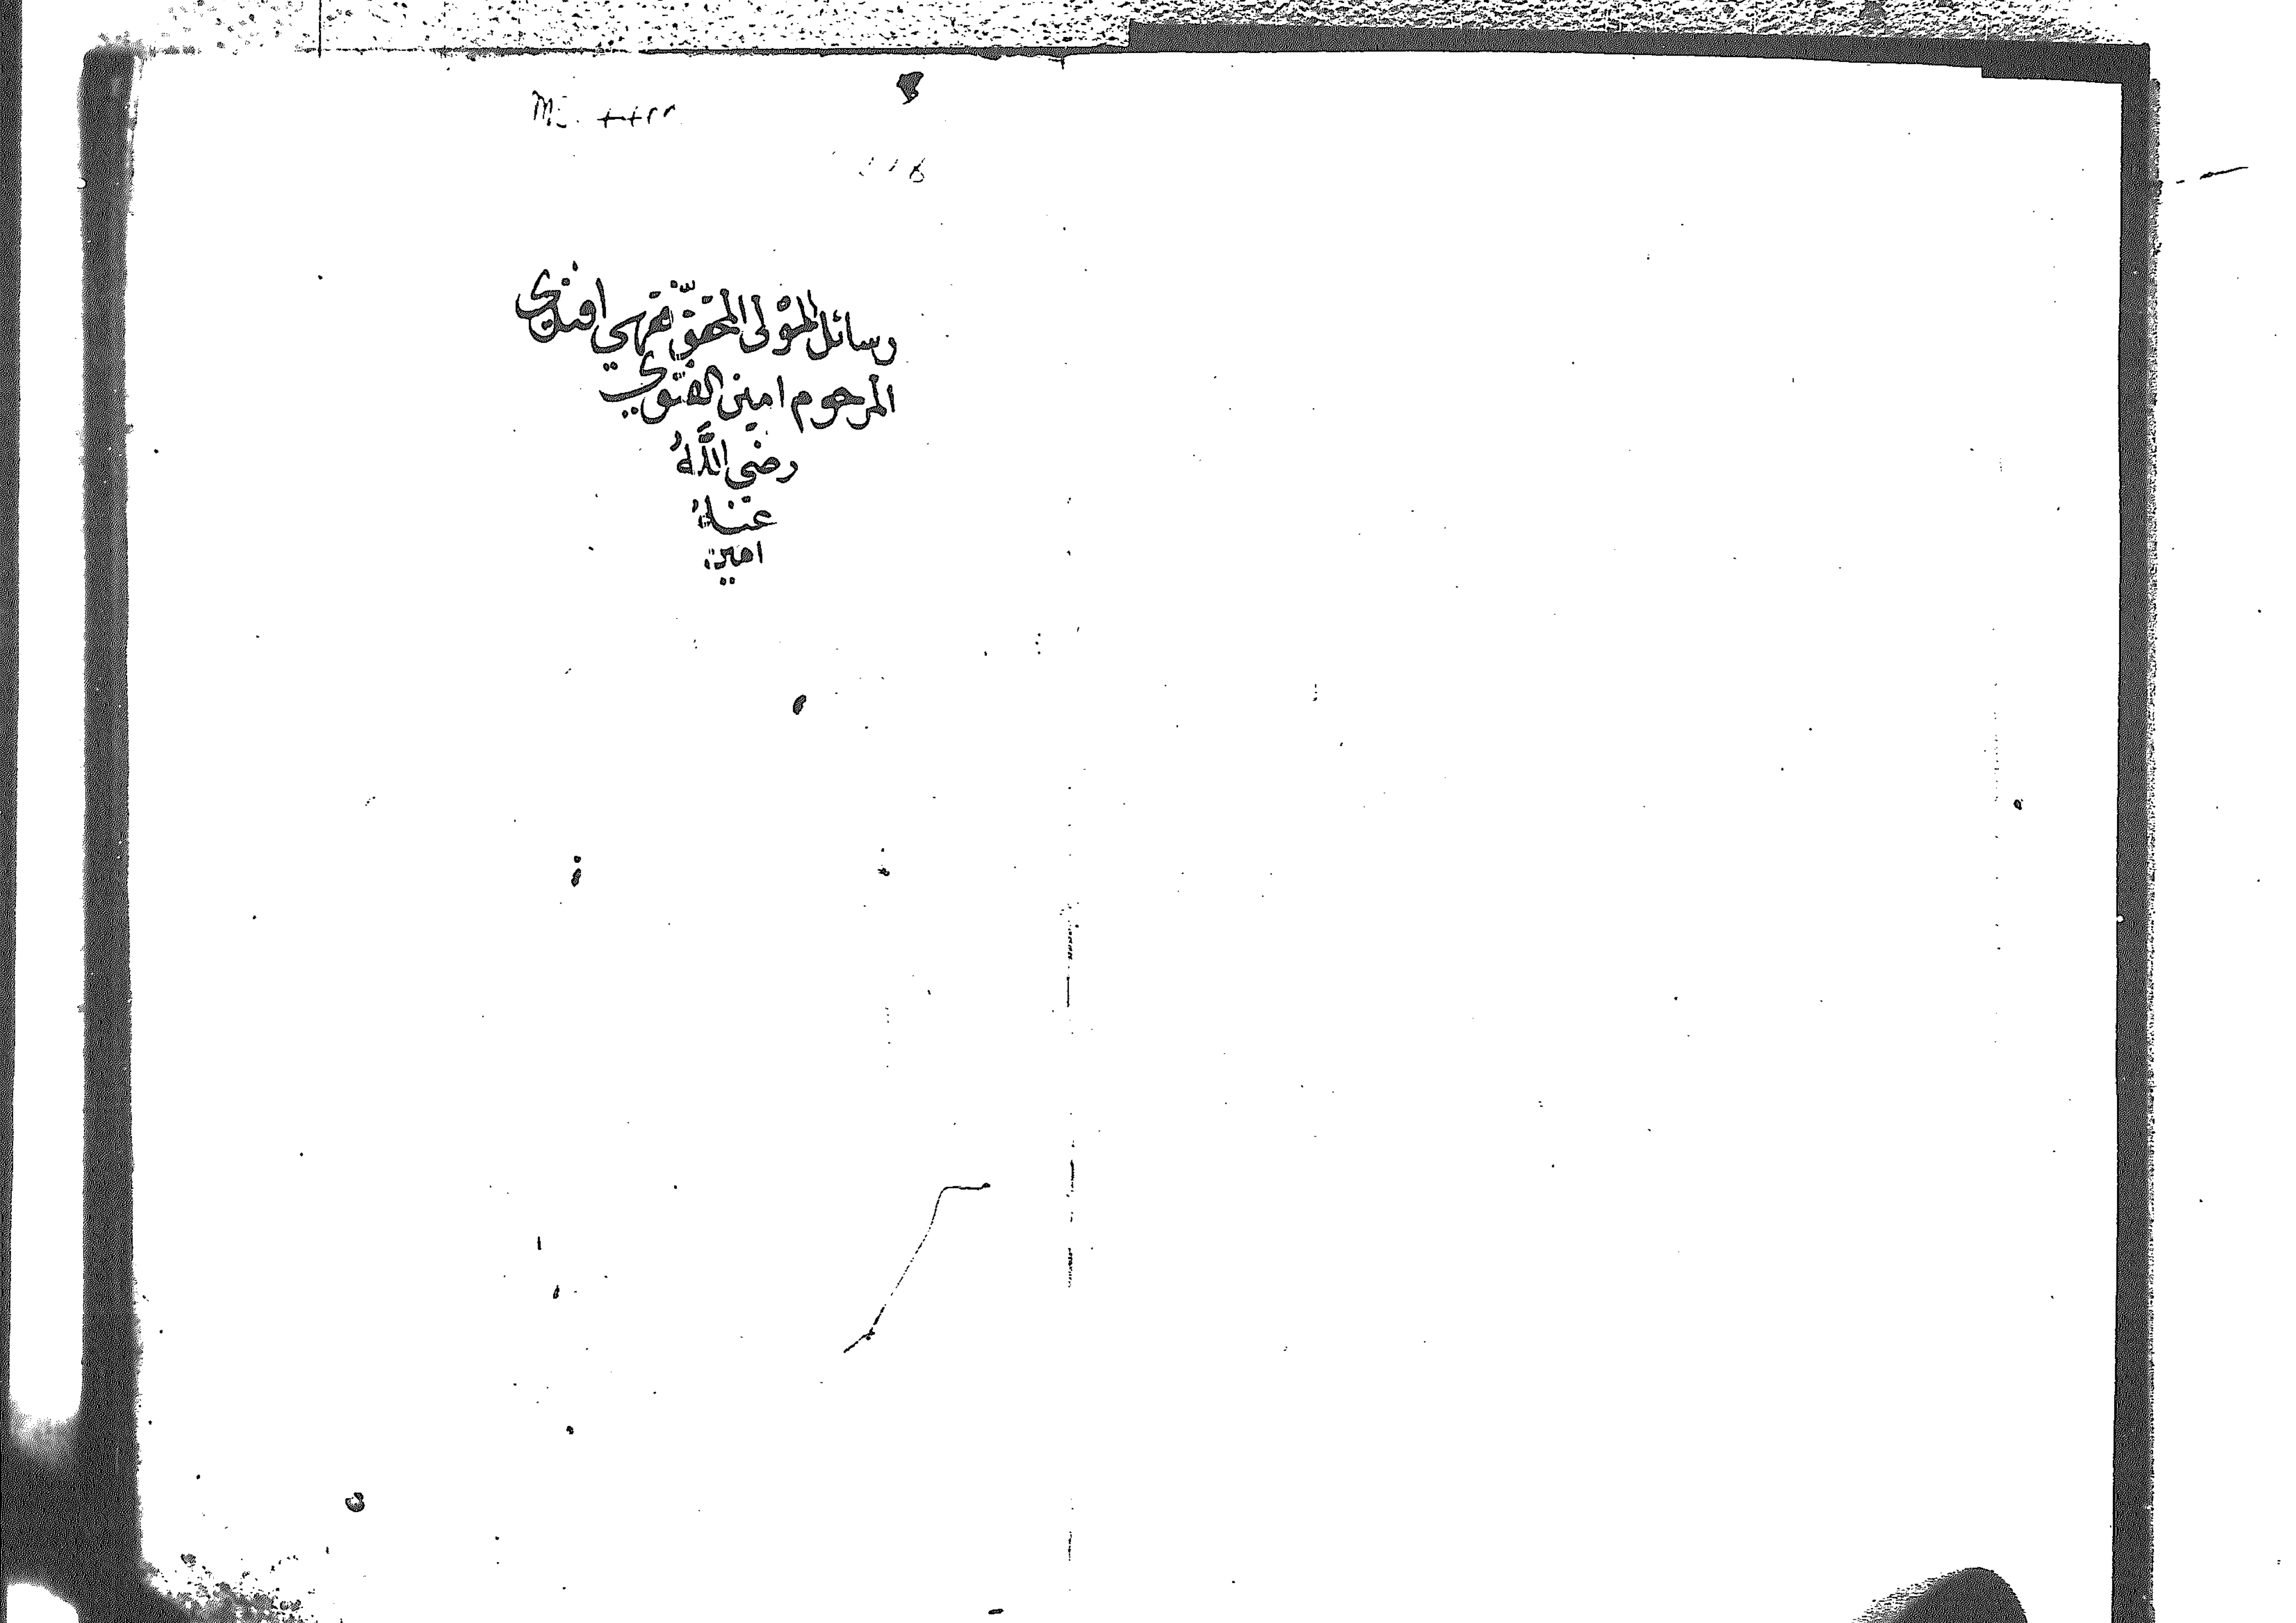 رسائل المَوْلى المحقّق فقهي افندي
المرحوم امين الفتوي
رضى اللَّهُ
عنهُ
امين